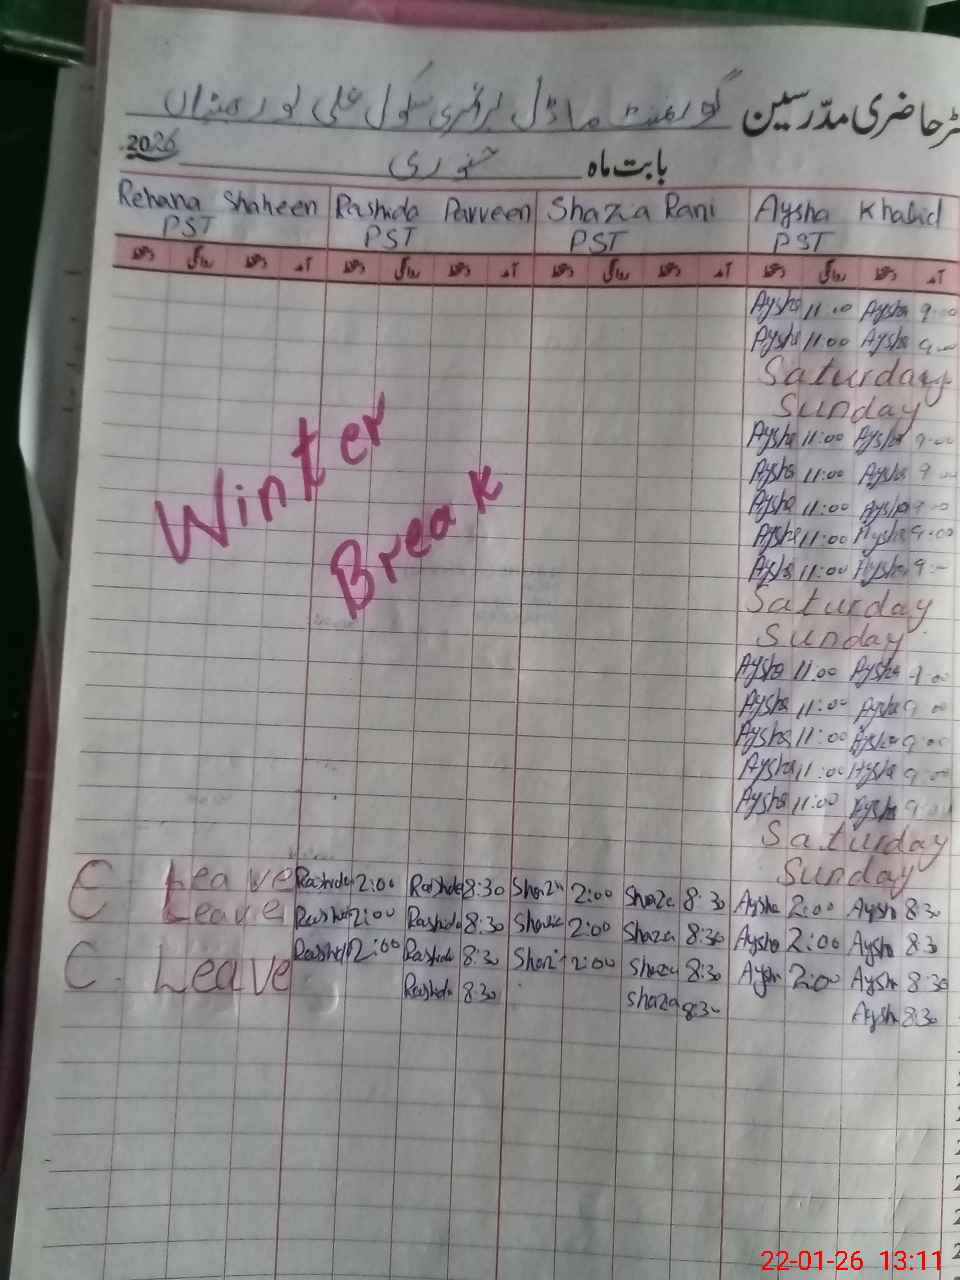 ٹر حاضری مدرسین گورنمنٹ ماڈل پرائمری سکول علی پور
بابت ماہ جنوری 2026
Rehana Shaheen PST
Rashida Parveen PST
Shazia Rani PST
Aysha Khalid PST
آمد روانگی آمد روانگی آمد روانگی آمد روانگی
Winter Break
Aysha 11:00 Aysha 9:00
Aysha 11:00 Aysha 9:00
Saturday
Sunday
Aysha 11:00 Aysha 9:00
Aysha 11:00 Aysha 9:00
Aysha 11:00 Aysha 9:00
Aysha 11:00 Aysha 9:00
Aysha 11:00 Aysha 9:
Saturday
Sunday
Aysha 11:00 Aysha 9:00
Aysha 11:00 Aysha 9:00
Aysha 11:00 Aysha 9:00
Aysha 11:00 Aysha 9:00
Aysha 11:00 Aysha 9:00
Saturday
Sunday
C Leave Rashida 2:00 Rashida 8:30 Shazia 2:00 Shazia 8:30 Aysha 2:00 Aysha 8:30
Leave Rashida 2:00 Rashida 8:30 Shazia 2:00 Shaza 8:30 Aysha 2:00 Aysha 8:30
C. Leave Rashida 2:00 Rashida 8:30 Shazia 2:00 Shaza 8:30 Aysha 2:00 Aysha 8:30
Rashida 8:30 Shaza 8:30 Aysha 8:30
22-01-26 13:11